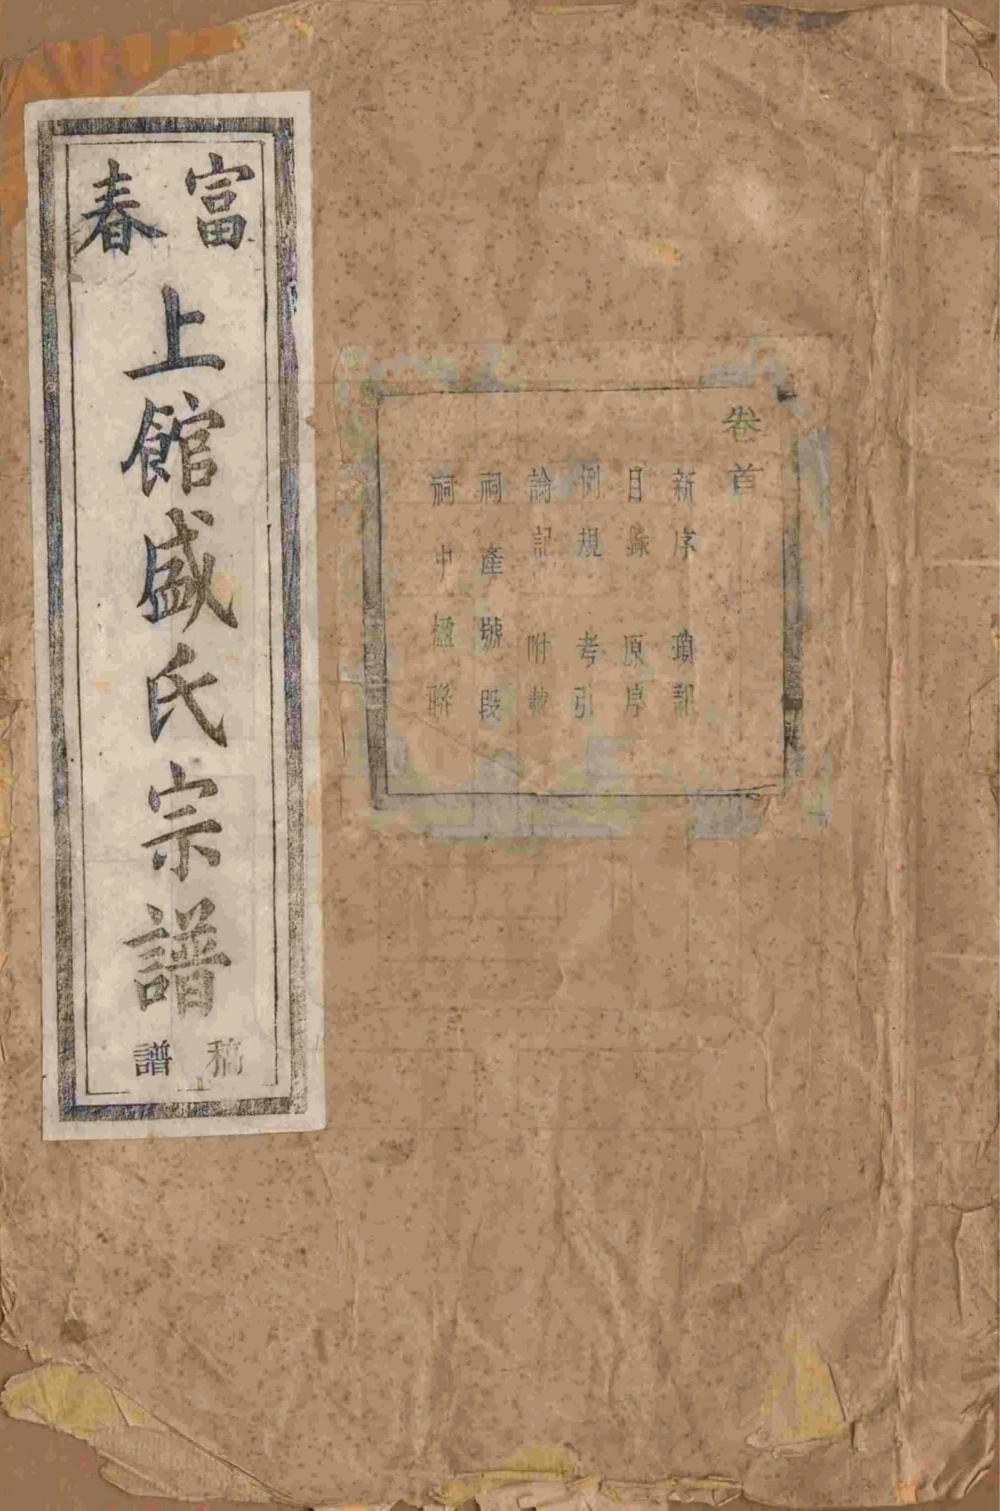 富春
上館盛氏宗譜
稿譜
卷首
新序 瑣記
目錄 原序
例規 考引
論記 附載
祠產號段
祠中楹聯